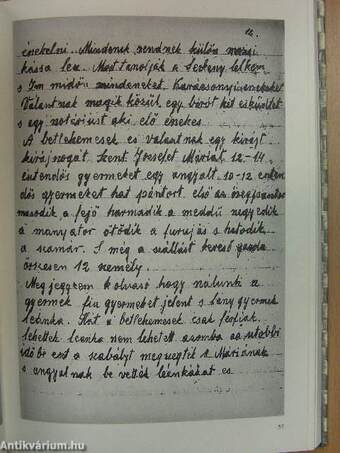 12.
énekelni. Mindenek rendnek külön
kássa len. Most tanolják a Serkeny lelkem
s Im midőn mindeneket. Karácsonyi énekeket
Valantnak magik közül egy birót két esküdtet
s egy notáriust aki elő énekes.
A betlehemesek es valantnak egy királyt
királynögát Szent Józsefet Máriát. 12-14.
eutendős gyermeket egy angyalt 10-12 eszten
dős gyermeket hat pántort. első az öregpásztor
második a fejő harmadik a meddü negyedik
a manyator ötödik a furujás s hatodik
a szamár. S még a szállást kereső gazda
összesen 12 személy.
Meg jegyzem kolvasó hogy nálunti a
gyermek fiu gyermeket jelent s lány gyermek
leánka. Hat a betlehemesek csak fcofiak
lehettek leánka nem lehetett azomba az utobbi
idöbe ezt a szabályt megszegték s Máriának
s angyalnak be vették leánkákat es
57
Antikvárium.hu